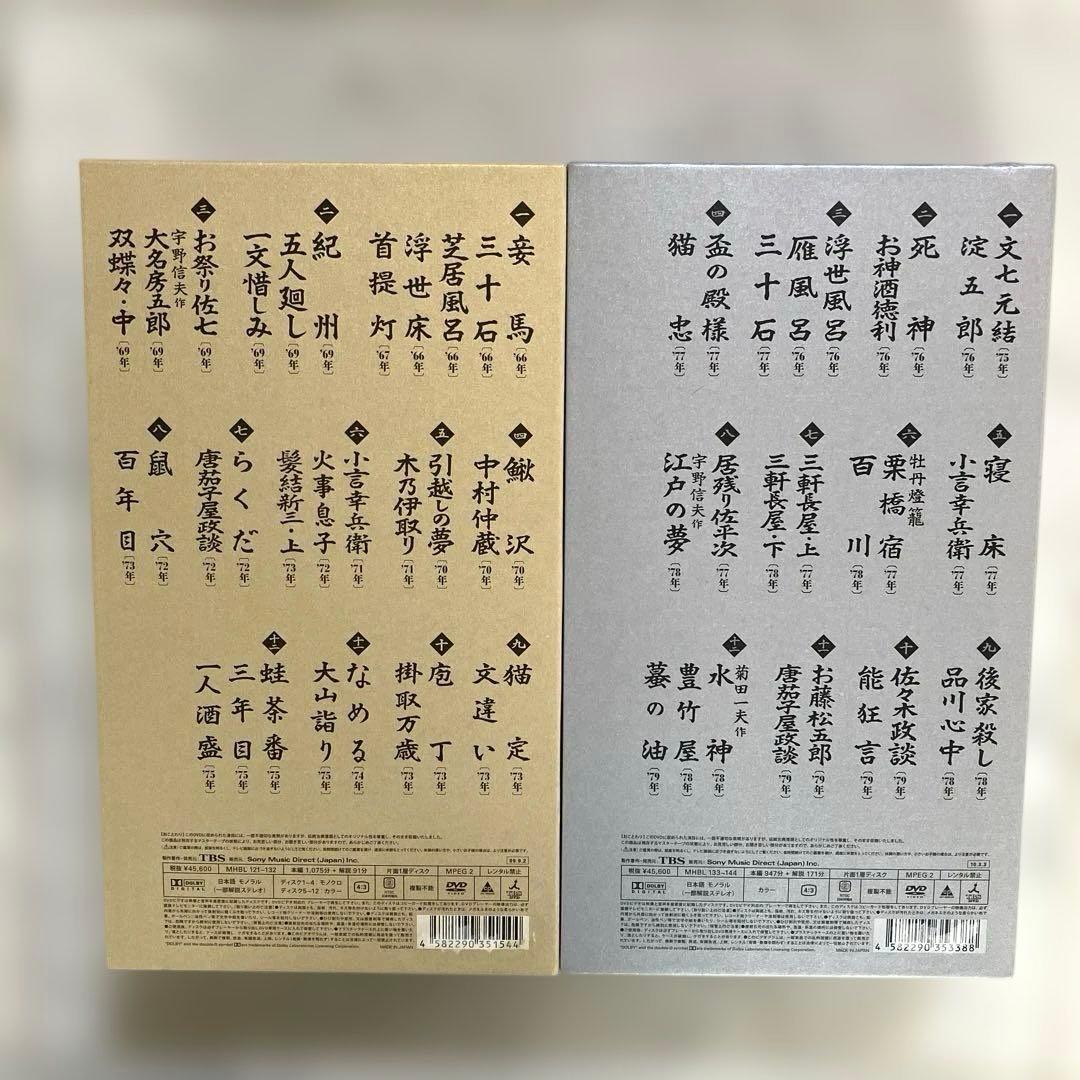 一
妾馬
三十石〔'66年〕
芝居風呂〔'66年〕
浮世床〔'66年〕
首提灯〔'67年〕
二
紀州〔'69年〕
五人廻し〔'69年〕
一文惜しみ〔'69年〕
三
お祭り佐七〔'69年〕
宇野信夫作
大名房五郎〔'69年〕
双蝶々・中〔'69年〕
四
鰍沢〔'70年〕
中村仲蔵〔'70年〕
五
引越しの夢〔'70年〕
木乃伊取り〔'71年〕
六
小言幸兵衛〔'71年〕
火事息子〔'72年〕
髪結新三・上〔'73年〕
七
らくだ〔'72年〕
唐茄子屋政談〔'72年〕
八
鼠穴〔'72年〕
百年目〔'73年〕
九
猫定〔'73年〕
文違い〔'73年〕
十
庖丁〔'73年〕
掛取万歳〔'73年〕
十一
なめる〔'74年〕
大山詣り〔'75年〕
十二
蛙茶番〔'75年〕
三年目〔'75年〕
一人酒盛〔'75年〕
製作著作・発売元 TBS 販売元 Sony Music Direct (Japan) Inc.
09.9.2
税抜 ¥45,600 MHBL 121~132 本編 1,075分+解説 91分 片面1層ディスク MPEG 2 レンタル禁止
DOLBY DIGITAL 日本語 モノラル (一部解説ステレオ) ディスク1~4 モノクロ ディスク5~12 カラー 4:3 複製不能 DVD VIDEO
4 582290 351544
MADE IN JAPAN
一
文七元結〔'75年〕
淀五郎〔'76年〕
二
死神〔'76年〕
お神酒徳利〔'76年〕
三
浮世風呂〔'76年〕
雁風呂〔'76年〕
三十石〔'77年〕
四
盃の殿様〔'77年〕
猫忠〔'77年〕
五
寝床〔'77年〕
小言幸兵衛〔'77年〕
六
牡丹燈籠
栗橋宿〔'77年〕
百川〔'78年〕
七
三軒長屋・上〔'77年〕
三軒長屋・下〔'78年〕
八
居残り佐平次〔'77年〕
宇野信夫作
江戸の夢〔'78年〕
九
後家殺し〔'78年〕
品川心中〔'78年〕
十
佐々木政談〔'79年〕
能狂言〔'79年〕
十一
お藤松五郎〔'79年〕
唐茄子屋政談〔'79年〕
十二
菊田一夫作
水神〔'78年〕
豊竹屋〔'78年〕
蟇の油〔'79年〕
製作著作・発売元 TBS 販売元 Sony Music Direct (Japan) Inc.
10.3.3
税抜 ¥45,600 MHBL 133~144 本編 947分+解説 171分 片面1層ディスク MPEG 2 レンタル禁止
DOLBY DIGITAL 日本語 モノラル (一部解説ステレオ) カラー 4:3 複製不能 DVD VIDEO
4 582290 353388
MADE IN JAPAN